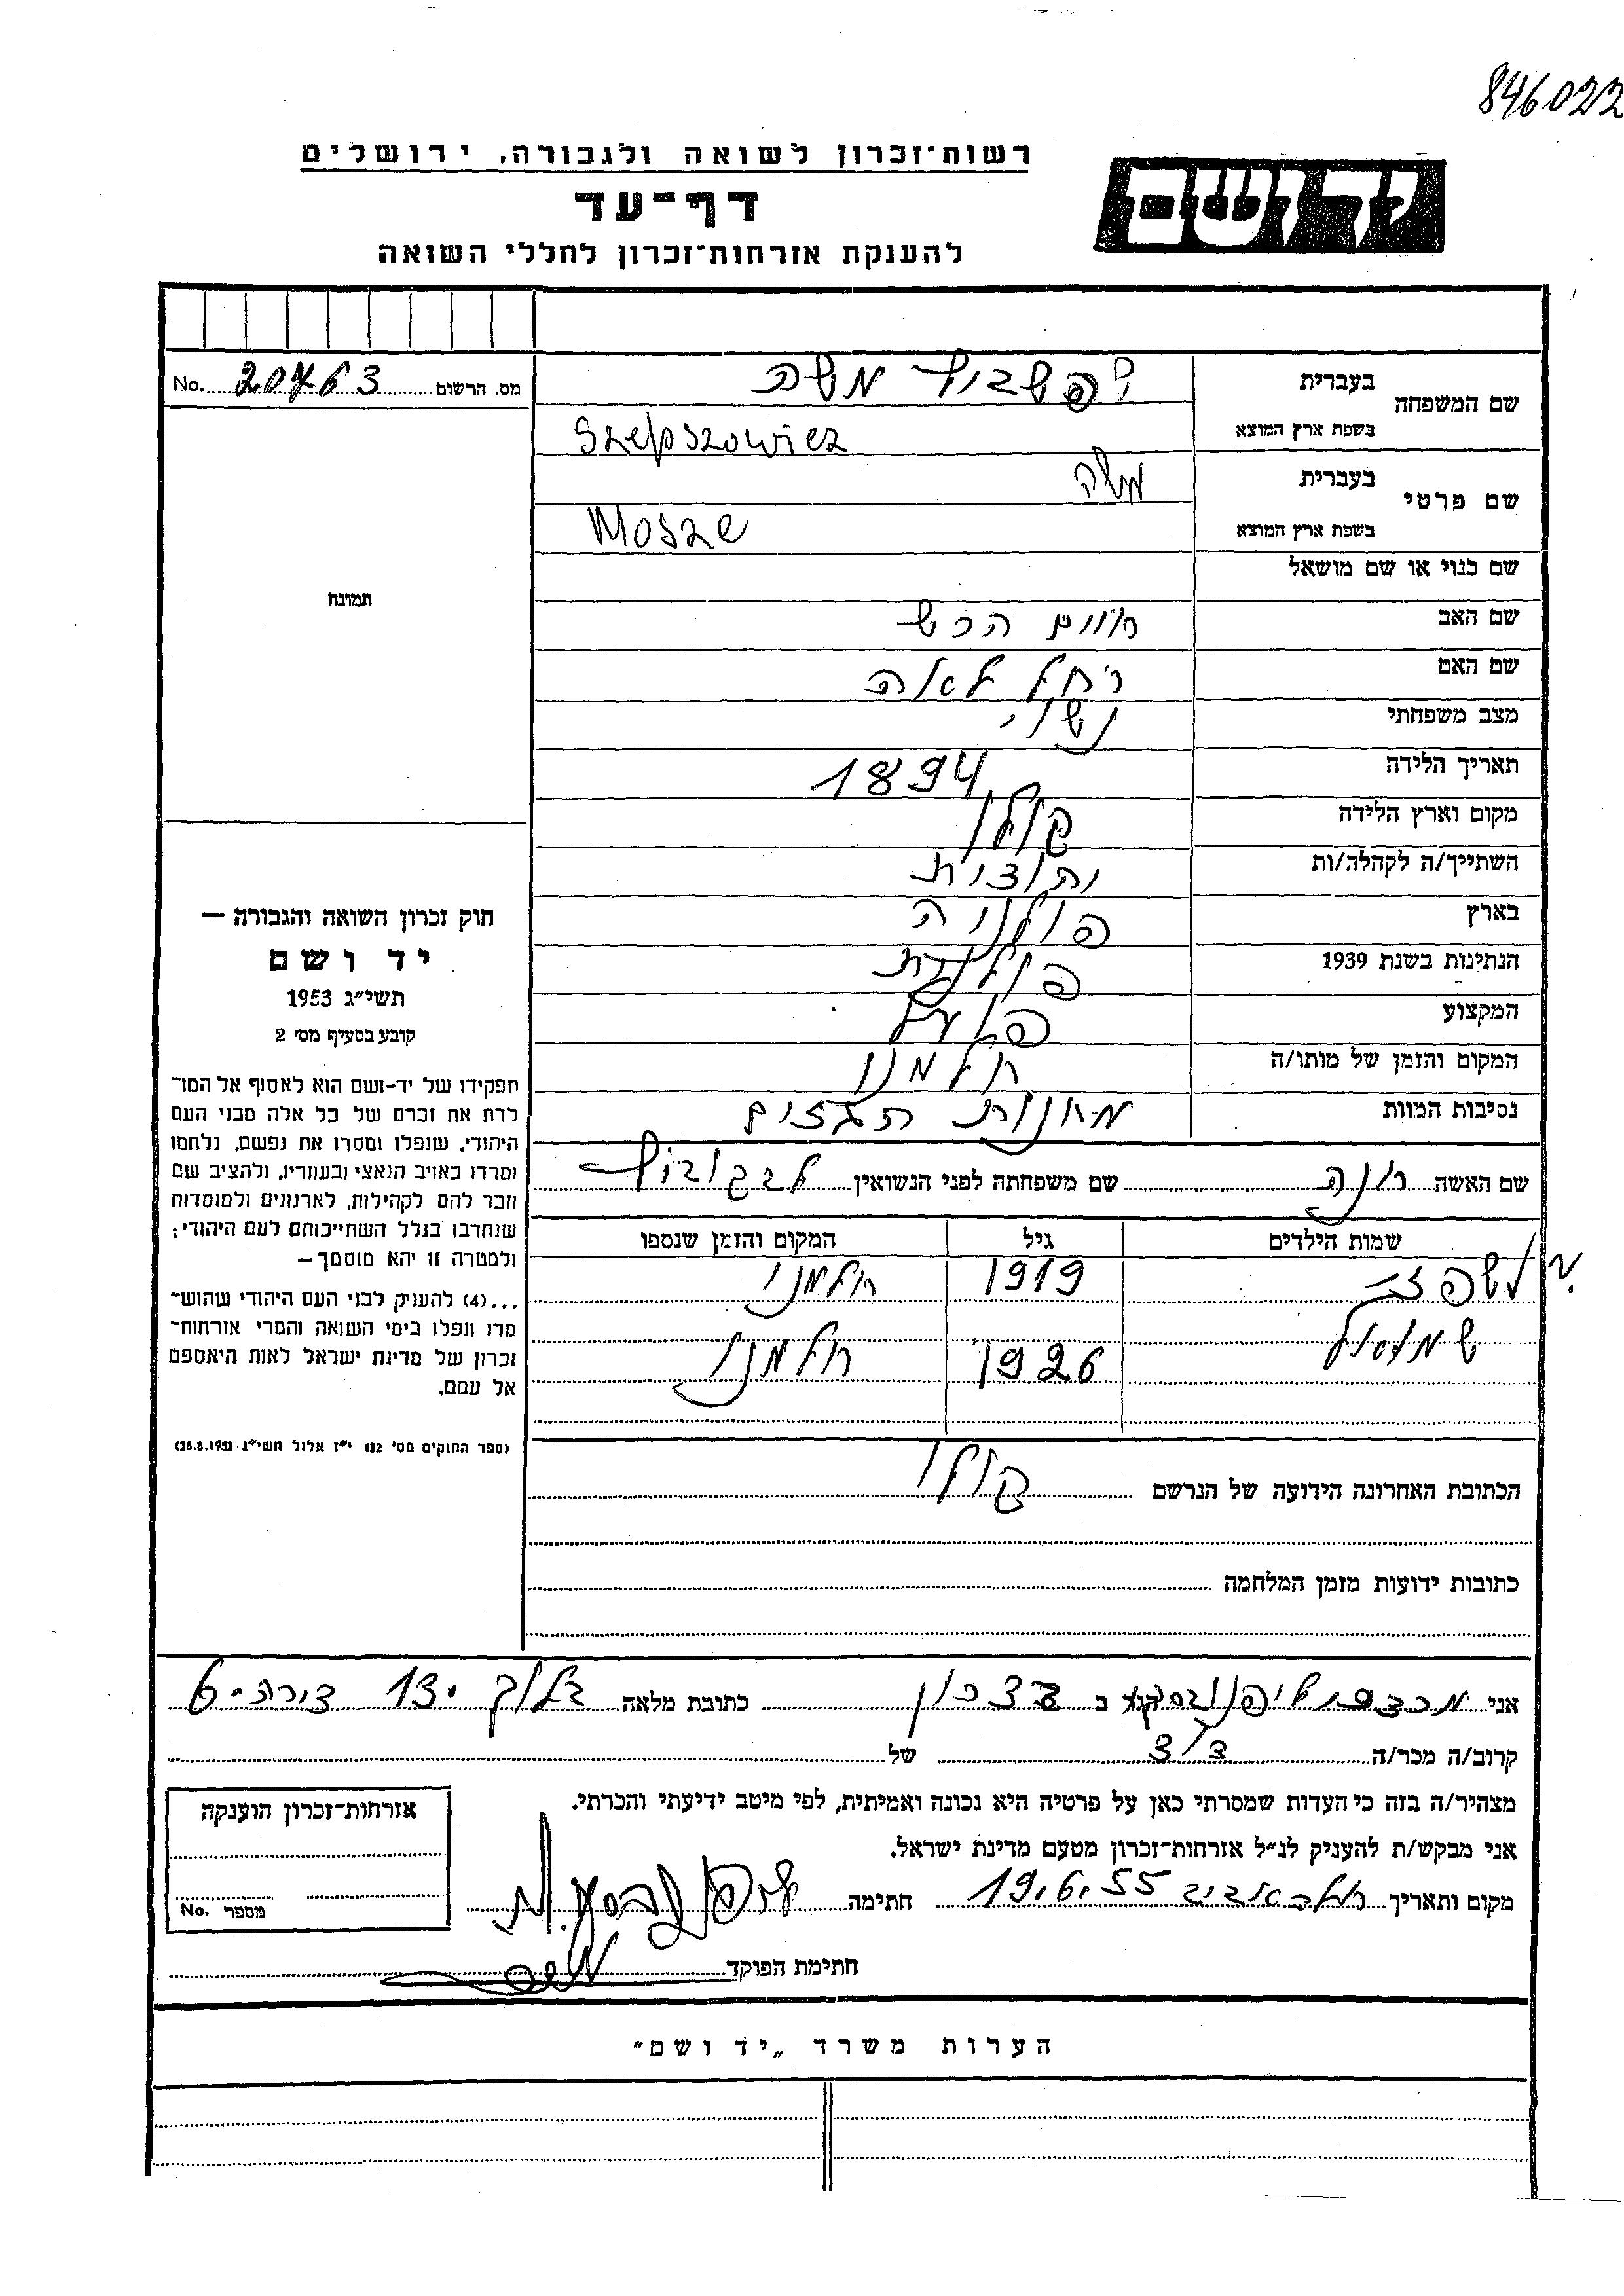 846022
רשות־זכרון לשואה ולגבורה, ירושלים
יד ושם
דף־עד
להענקת אזרחות־זכרון לחללי השואה
מס. הרשום 20463 No.
שם המשפחה
בעברית משה
בשפת ארץ המוצא Szepszowicz
שם פרטי
בעברית משה
בשפת ארץ המוצא Mosze
שם כנוי או שם מושאל
תמונה
שם האב חיים הרש
שם האם רחל לאה
מצב משפחתי נשוי
תאריך הלידה 1894
מקום וארץ הלידה קולו
השתייך/ה לקהלה/ות
בארץ פולניה
הנתינות בשנת 1939 פולנית
המקצוע פועל
המקום והזמן של מותו/ה חלמנו
נסיבות המוות הגזים
חוק זכרון השואה והגבורה —
יד ושם
תשי״ג 1953
קובע בסעיף מס׳ 2
תפקידו של יד-ושם הוא לאסוף אל המו־
לדת את זכרם של כל אלה מבני העם
היהודי, שנפלו ומסרו את נפשם, נלחמו
ומרדו באויב הנאצי ובעוזריו, ולהציב שם
וזכר להם לקהילות, לארגונים ולמוסדות
שנחרבו בגלל השתייכותם לעם היהודי;
ולמטרה זו יהא מוסמך—
...(4) להעניק לבני העם היהודי שהוש־
מדו ונפלו בימי השואה והמרי אזרחות־
זכרון של מדינת ישראל לאות היאספם
אל עמם.
(ספר החוקים מס׳ 132 י״ז אלול תשי״ג 28.8.1953)
שם האשה שם משפחתה לפני הנשואין
שמות הילדים גיל המקום והזמן שנספו
1919 חלמנו
שמואל 1926 חלמנו
הכתובת האחרונה הידועה של הנרשם קולו
כתובות ידועות מזמן המלחמה
אני ב כתובת מלאה בלוק 13 דירה 6
קרוב/ה מכר/ה של
מצהיר/ה בזה כי העדות שמסרתי כאן על פרטיה היא נכונה ואמיתית, לפי מיטב ידיעתי והכרתי.
אני מבקש/ת להעניק לנ״ל אזרחות־זכרון מטעם מדינת ישראל.
מקום ותאריך תל אביב 19.6.55 חתימה
חתימת הפוקד
אזרחות־זכרון הוענקה
מספר No.
הערות משרד „יד ושם״